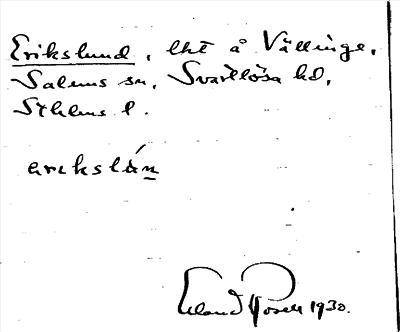 Erikslund, lht å Vällinge,
Salems sn, Svartlösa hd,
Sthlms l.
erekslún
Erland Rosell 1930.